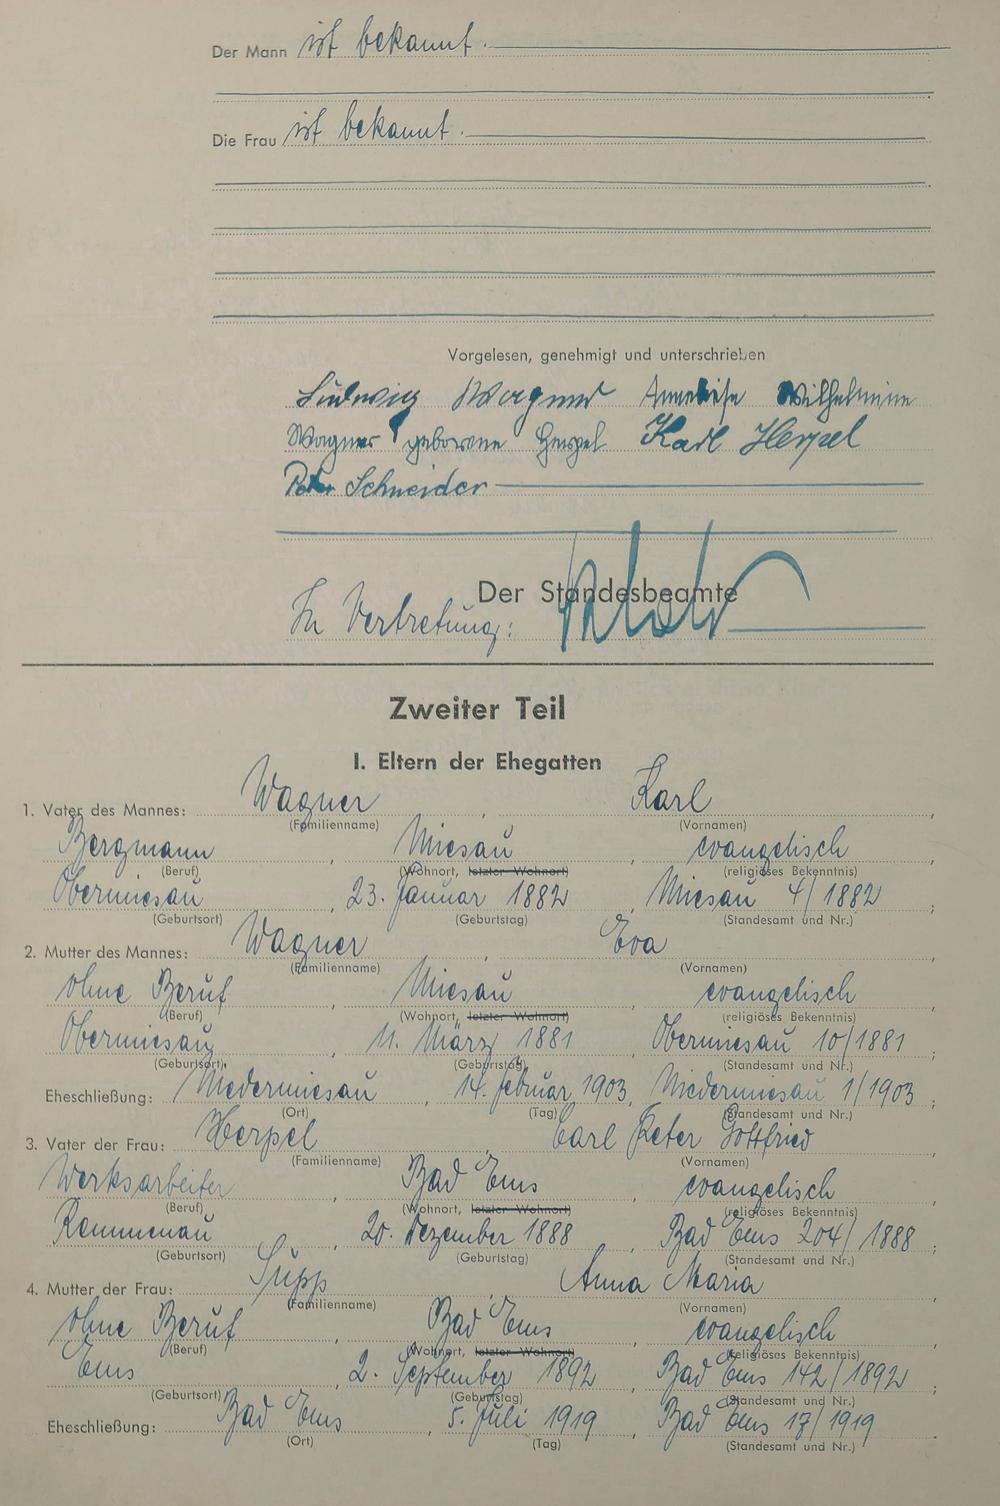 Der Mann ist bekannt.
Die Frau ist bekannt.
Vorgelesen, genehmigt und unterschrieben
Ludwig Wagner Anneliese Wilhelmine
Wagner geborene Herpel Karl Herpel
Peter Schneider
Der Standesbeamte
In Vertretung:
Zweiter Teil
I. Eltern der Ehegatten
1. Vater des Mannes: Wagner, Karl,
(Familienname) (Vornamen)
Bergmann, Miesau, evangelisch,
(Beruf) (Wohnort, letzter Wohnort) (religiöses Bekenntnis)
Obermiesau, 23. Januar 1882, Miesau 4/1882;
(Geburtsort) (Geburtstag) (Standesamt und Nr.)
2. Mutter des Mannes: Wagner, Eva,
(Familienname) (Vornamen)
ohne Beruf, Miesau, evangelisch,
(Beruf) (Wohnort, letzter Wohnort) (religiöses Bekenntnis)
Obermiesau, 11. März 1881, Obermiesau 10/1881
(Geburtsort), (Geburtstag), (Standesamt und Nr.)
Eheschließung: Niedermiesau, 14. Februar 1903, Niedermiesau 1/1903;
(Ort) (Tag) (Standesamt und Nr.)
3. Vater der Frau: Herpel, Carl Peter Gottfried
(Familienname) (Vornamen)
Werksarbeiter, Bad Ems, evangelisch,
(Beruf) (Wohnort, letzter Wohnort) (religiöses Bekenntnis)
Kemmenau, 20. Dezember 1888, Bad Ems 204/1888;
(Geburtsort) (Geburtstag) (Standesamt und Nr.)
4. Mutter der Frau: Supp, Anna Maria,
(Familienname) (Vornamen)
ohne Beruf, Bad Ems, evangelisch,
(Beruf) (Wohnort, letzter Wohnort) (religiöses Bekenntnis)
Ems, 2. September 1892, Bad Ems 142/1892;
(Geburtsort) (Geburtstag) (Standesamt und Nr.)
Eheschließung: Bad Ems, 5. Juli 1919, Bad Ems 17/1919.
(Ort) (Tag) (Standesamt und Nr.)